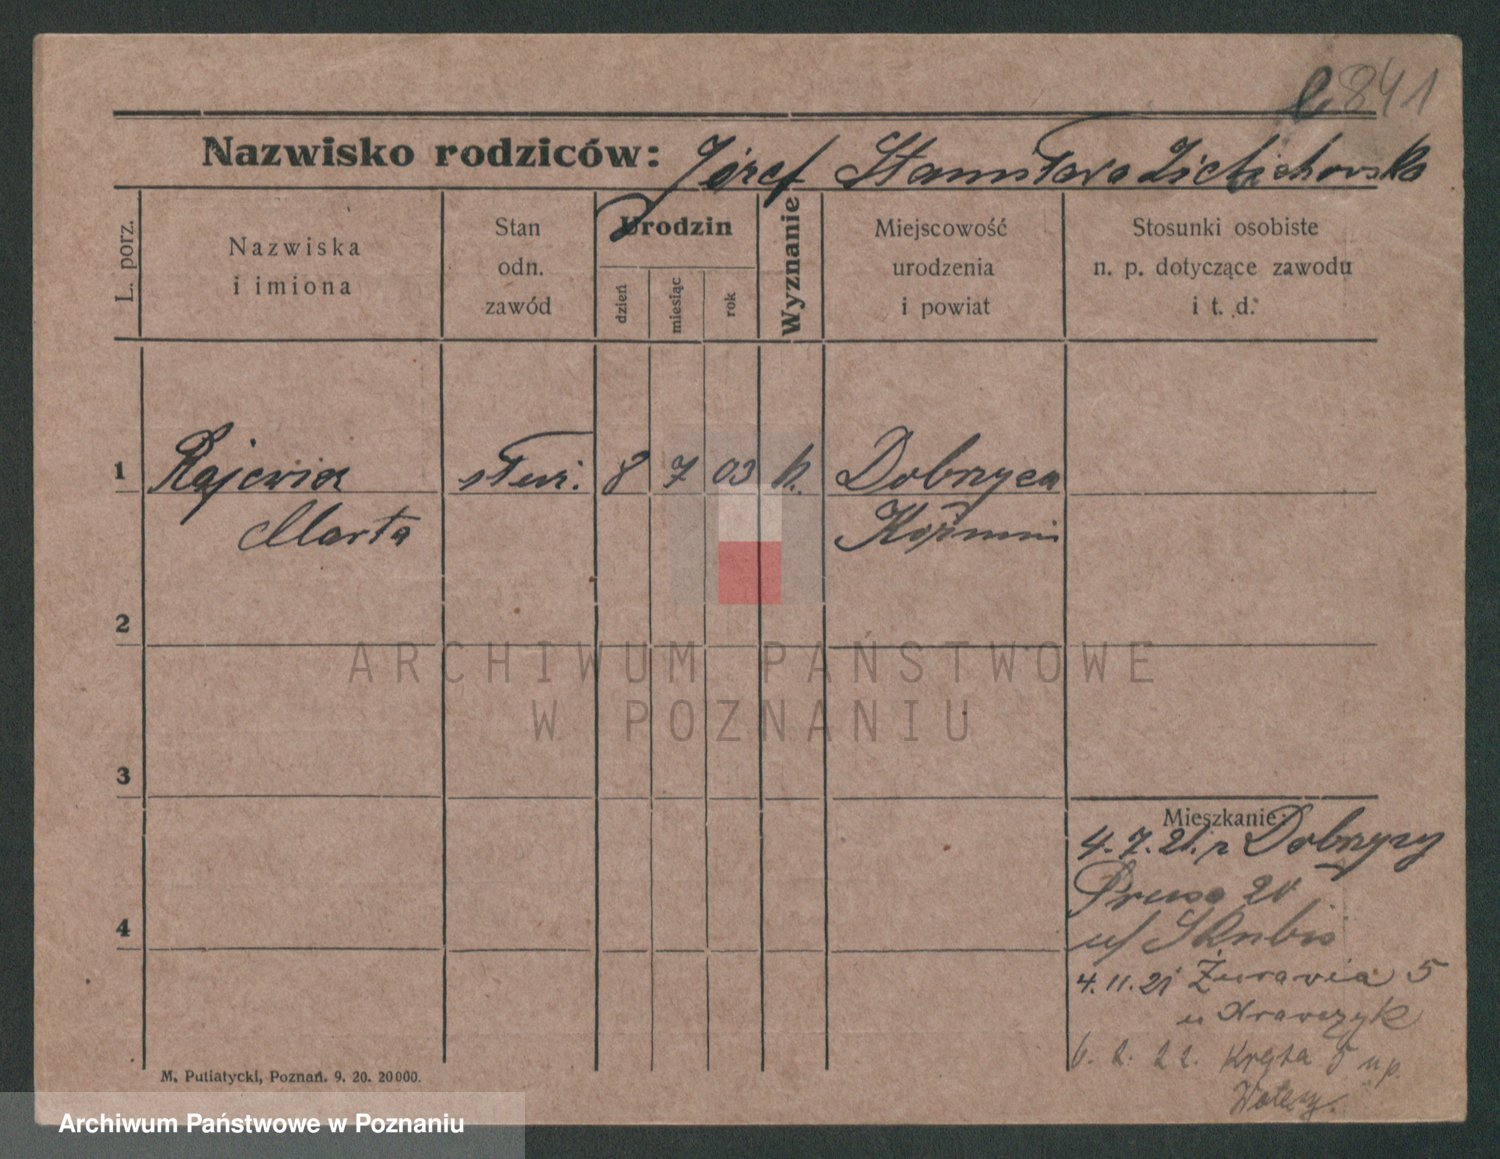 841
Nazwisko rodziców: Józef Stanisława Zichichowska
L. porz.
Nazwiska
i imiona
Stan
odn.
zawód
Urodzin
dzień
miesiąc
rok
Wyznanie
Miejscowość
urodzenia
i powiat
Stosunki osobiste
n. p. dotyczące zawodu
i t. d.
1 Rajewicz służ. 8 7 03 k. Dobrzyca
Marta Koźmin
2
3
4
Mieszkanie:
4.7.21. z Dobrzycy
Prusa 20
u/ Skubis
4.11.21 Żurawia 5
u Krawczyk
6. 2. 22 Kręta 5 u p.
M. Putiatycki, Poznań. 9. 20. 20000.
ARCHIWUM PAŃSTWOWE
W POZNANIU
Archiwum Państwowe w Poznaniu